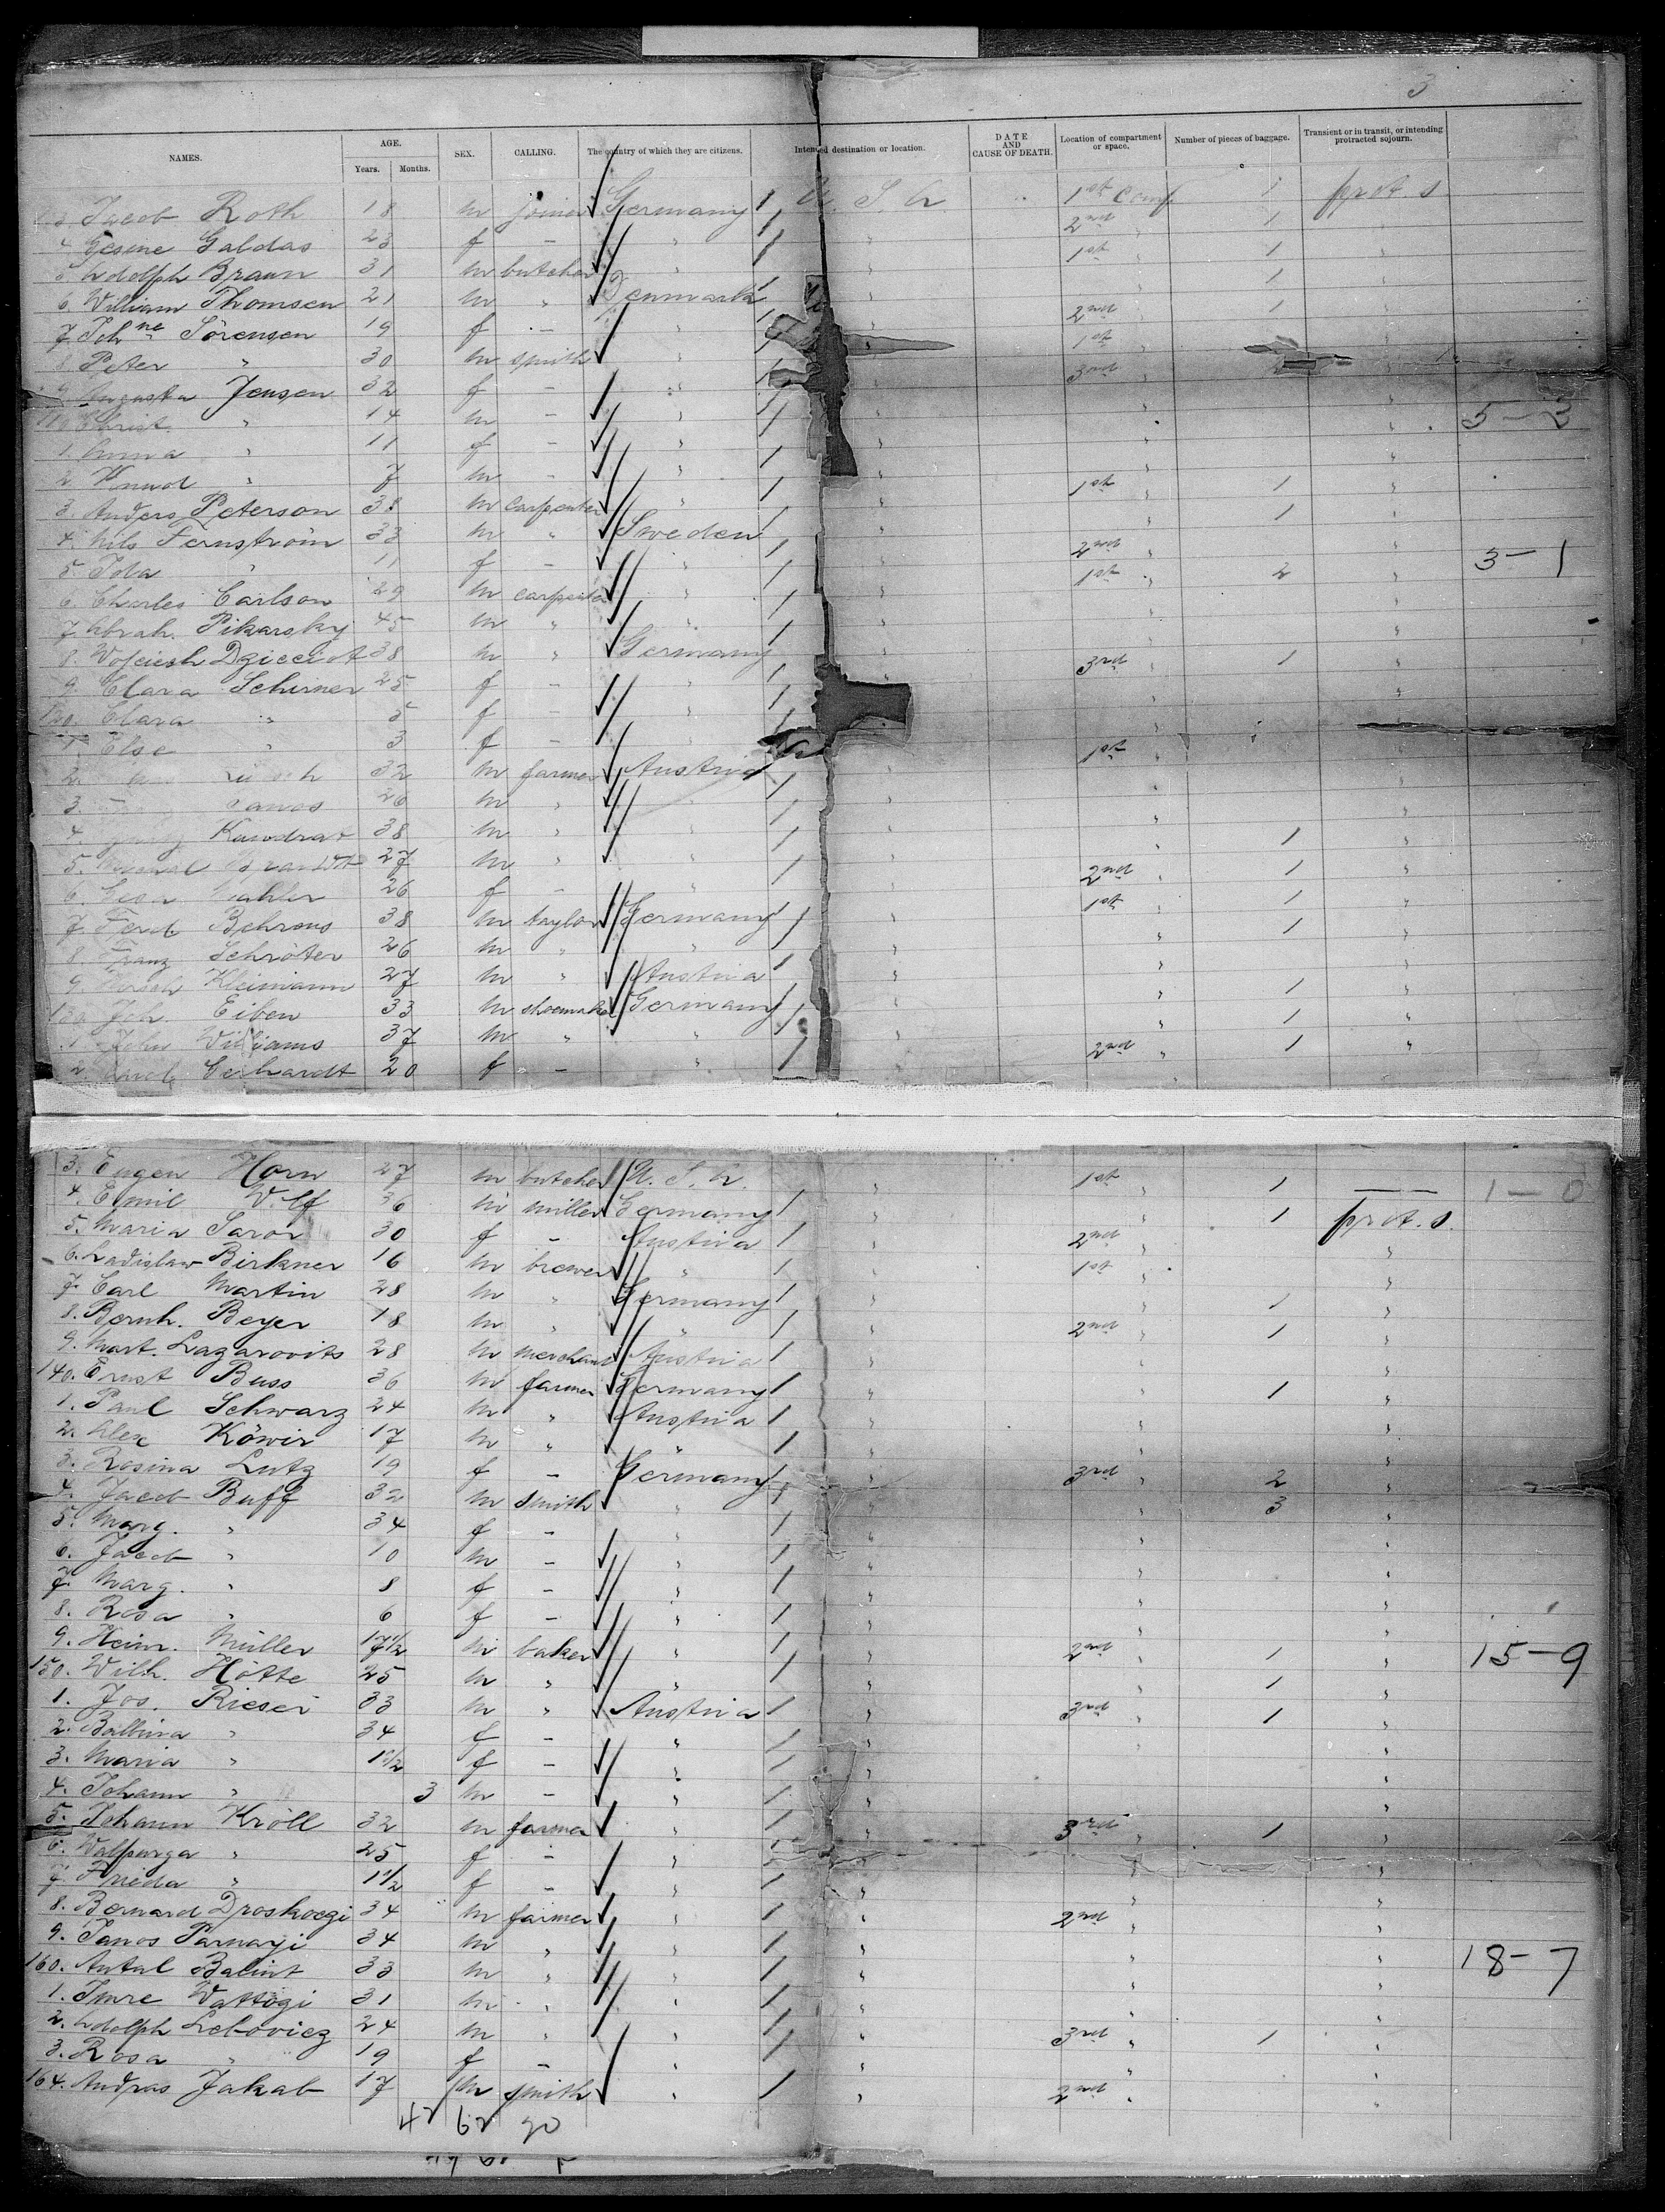 3
NAMES. AGE. Years. Months. SEX. CALLING. The country of which they are citizens. Intended destination or location. DATE AND CAUSE OF DEATH. Location of compartment or space. Number of pieces of baggage. Transient or in transit, or intending protracted sojourn.
3. Jacob Roth 18 m joiner Germany 1 U. S. A. 1st Comp. 1 prot. s
4. Gesine Galdas 23 f - " 1 " 2nd " 1 "
5. Adolph Braun 31 m butcher " 1 " 1st " 1 "
6. William Thomsen 21 m " Denmark 1 " " 1 "
7. Johne Sörensen 19 f - " 1 " 2nd " 1 "
8. Peter " 30 m smith " 1 " 1st "
9. Augusta Jensen 32 f - " 1 " 3rd " 2 "
110. Christ. " 14 m - " 1 " " " 5-3
1. Anna " 11 f - " 1 " " "
2. Knud " 7 m - " 1 " " "
3. Anders Peterson 38 m carpenter " 1 " 1st " 1 "
4. Nils Fernström 33 m " Sweden 1 " " 1 "
5. Ida " 11 f - " 1 " 2nd " " 3-1
6. Charles Carlson 29 m carpenter " 1 " 1st " 2 "
7. Abrah. Pikarsky 45 m " " 1 " " "
8. Wojciesh 38 m " Germany 1 " " "
9. Clara Schirner 25 f - " 1 3rd " 1 "
120. Clara " 5 f - " 1 " "
1. Else " 3 f - " 1 " "
2. 32 m farmer Austria 1 " 1st "
3. 26 m " " 1 " " "
4. Kondrat 38 m " " 1 " " "
5. 27 m " " 1 " 1 "
6. 26 f - " 1 2nd " 1 "
7. Ferd. Behrens 38 m taylor Germany 1 " 1st " 1 "
8. Franz Schröter 26 m " " 1 " " 1 "
9. Kleimann 27 m " Austria 1 " " "
130. Joh. Eiben 33 m shoemaker Germany 1 " " 1 "
1. John Williams 37 m " " 1 " 1 "
2. Gerhardt 20 f - " 1 2nd " 1 "
3. Eugen Horn 27 m butcher U. S. A. " 1st " 1 — 1-0
4. Emil Wolff 36 m miller Germany 1 " " 1 prot. s.
5. Maria Saror 30 f - Austria 1 " 2nd " "
6. Ladislaw Birkner 16 m brewer " 1 " 1st " "
7. Carl Martin 28 m " Germany 1 " " 1 "
8. Bernh. Beyer 18 m " " 1 " 2nd " 1 "
9. Mart. Lazarovits 28 m merchant Austria 1 " " "
140. Ernst Buss 36 m farmer Germany 1 " " 1 "
1. Paul Schwarz 24 m " Austria 1 " " "
2. Alex Köwir 17 m " " 1 " " "
3. Rosina Lutz 19 f - Germany 1 " 3rd " 2 "
4. Jacob Buff 32 m smith " 1 " " 3 "
5. Marg. " 34 f - " 1 " " "
6. Jacob " 10 m - " 1 " " "
7. Marg. " 8 f - " 1 " " "
8. Rosa " 6 f - " 1 " " "
9. Heinr. Müller 17 1/2 m baker " 1 " 2nd " 1 " 15-9
150. Wilh. Hötte 25 m " " 1 " " 1 "
1. Jos. Rieser 33 m " Austria 1 " 3rd " 1 "
2. Balbina " 34 f - " 1 " " "
3. Maria " 1 1/2 f - " 1 " " "
4. Johann " 3 m - " 1 " " "
5. Johann Kröll 32 m farmer " 1 " 3rd " 1 "
6. Walpurga " 25 f - " 1 " " "
7. Frieda " 1 1/2 f - " 1 " " "
8. Bernard Droskoczi 34 m farmer " 1 " 2nd " "
9. Janos Parnayi 34 m " " 1 " " " 18-7
160. Antal Balint 33 m " " 1 " " "
1. Imre Wattogi 31 m " " 1 " " "
2. Adolph Lebovicz 24 m " " 1 " 3rd " 1 "
3. Rosa " 19 f - " 1 " " "
164. Andras Jakab 17 m smith " 1 " 2nd " "
42 62 20